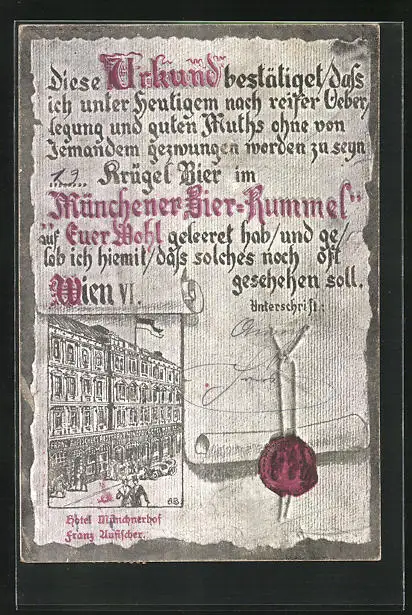 Diese Urkund bestätiget/daß
ich unter heutigem nach reifer Ueber
legung und guten Muths ohne von
Jemandem gezwungen worden zu seyn
19 Krügel Bier im
„Münchener Bier-Rummel"
auf Euer Wohl geleeret hab/und ge/
lob ich hiemit/daß solches noch oft
geschehen soll.
Wien VI.
Unterschrift:
Hotel Münchnerhof
Franz Aufischer.